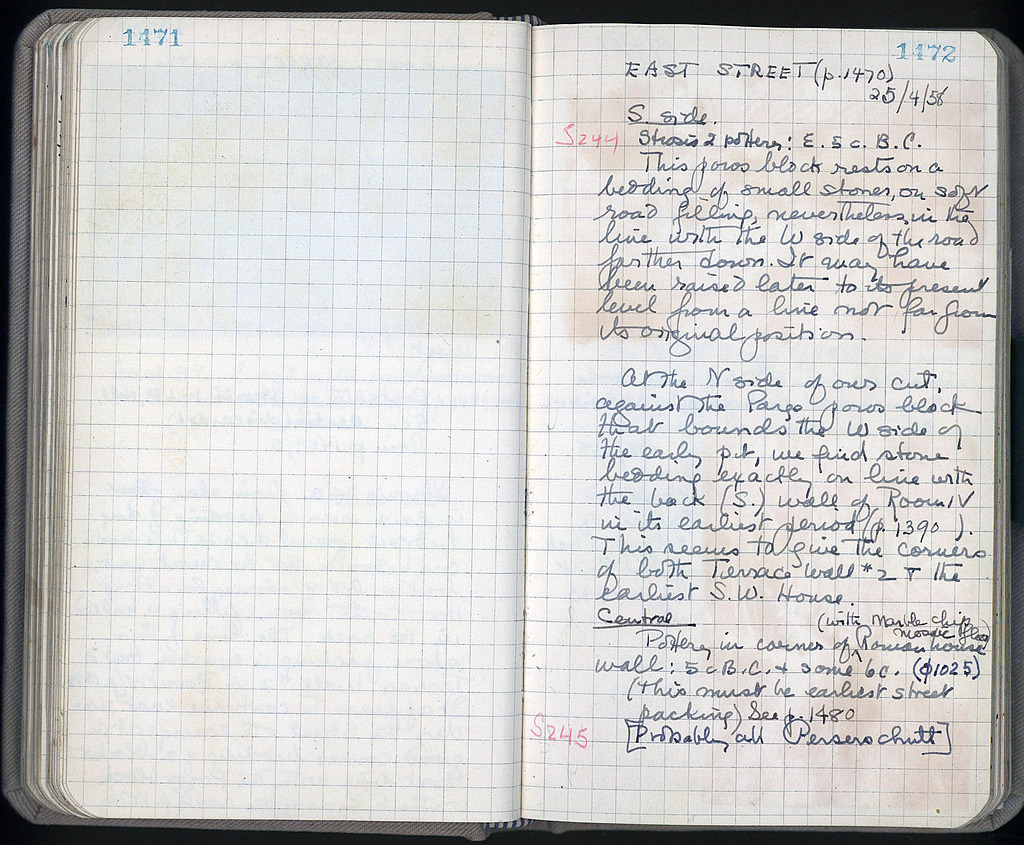 1471
1472
EAST STREET (p.1470)
25/4/56
S. side.
S244 Strosis 2 pottery: E. 5 c. B.C.
This poros block rests on a
bedding of small stones, on soft
road filling, nevertheless, in the
line with the W side of the road
farther down. It may have
been raised later to its present
level from a line not far from
its original position.
At the N side of our cut,
against the large poros block
that bounds the W side of
the early pit, we find stone
bedding exactly on line with
the back (S.) wall of Room IV
in its earliest period (p. 1390 ).
This seems to give the corners
of both Terrace Wall #2 & the
earliest S.W. House.
Central (with marble chip
mosaic floor)
Pottery in corner of ^ Roman house
wall: 5 c B.C. & some 6c. (φ1025)
(this must be earliest street
packing) See p. 1480
S245 [Probably all Perserschutt]